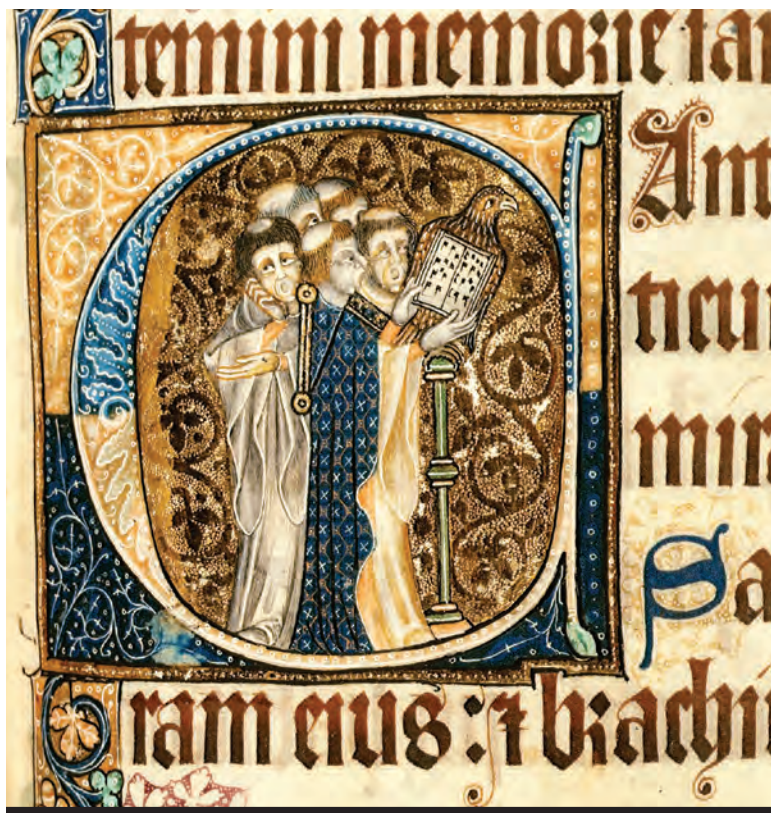 temini memorie san
C Ant
ticu
mira
Sa
ram eius : ⁊ brachi